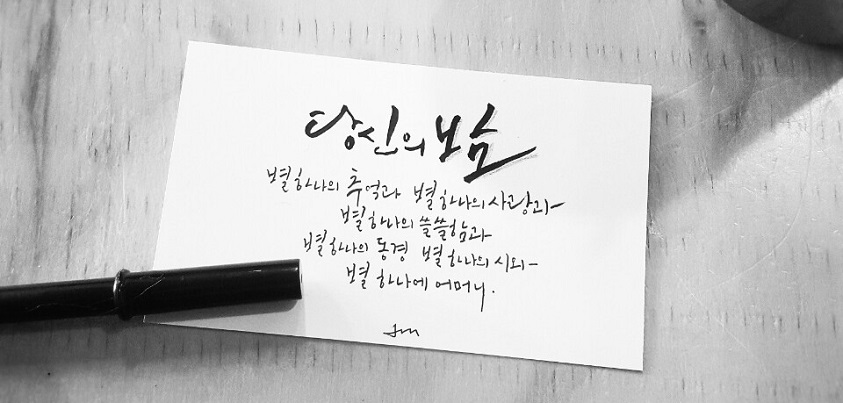 당신의
별하나의 추억과 별하나의 사랑과
별하나의 쓸쓸함과
별하나의 동경 별하나의 시와
별 하나에 어머니.